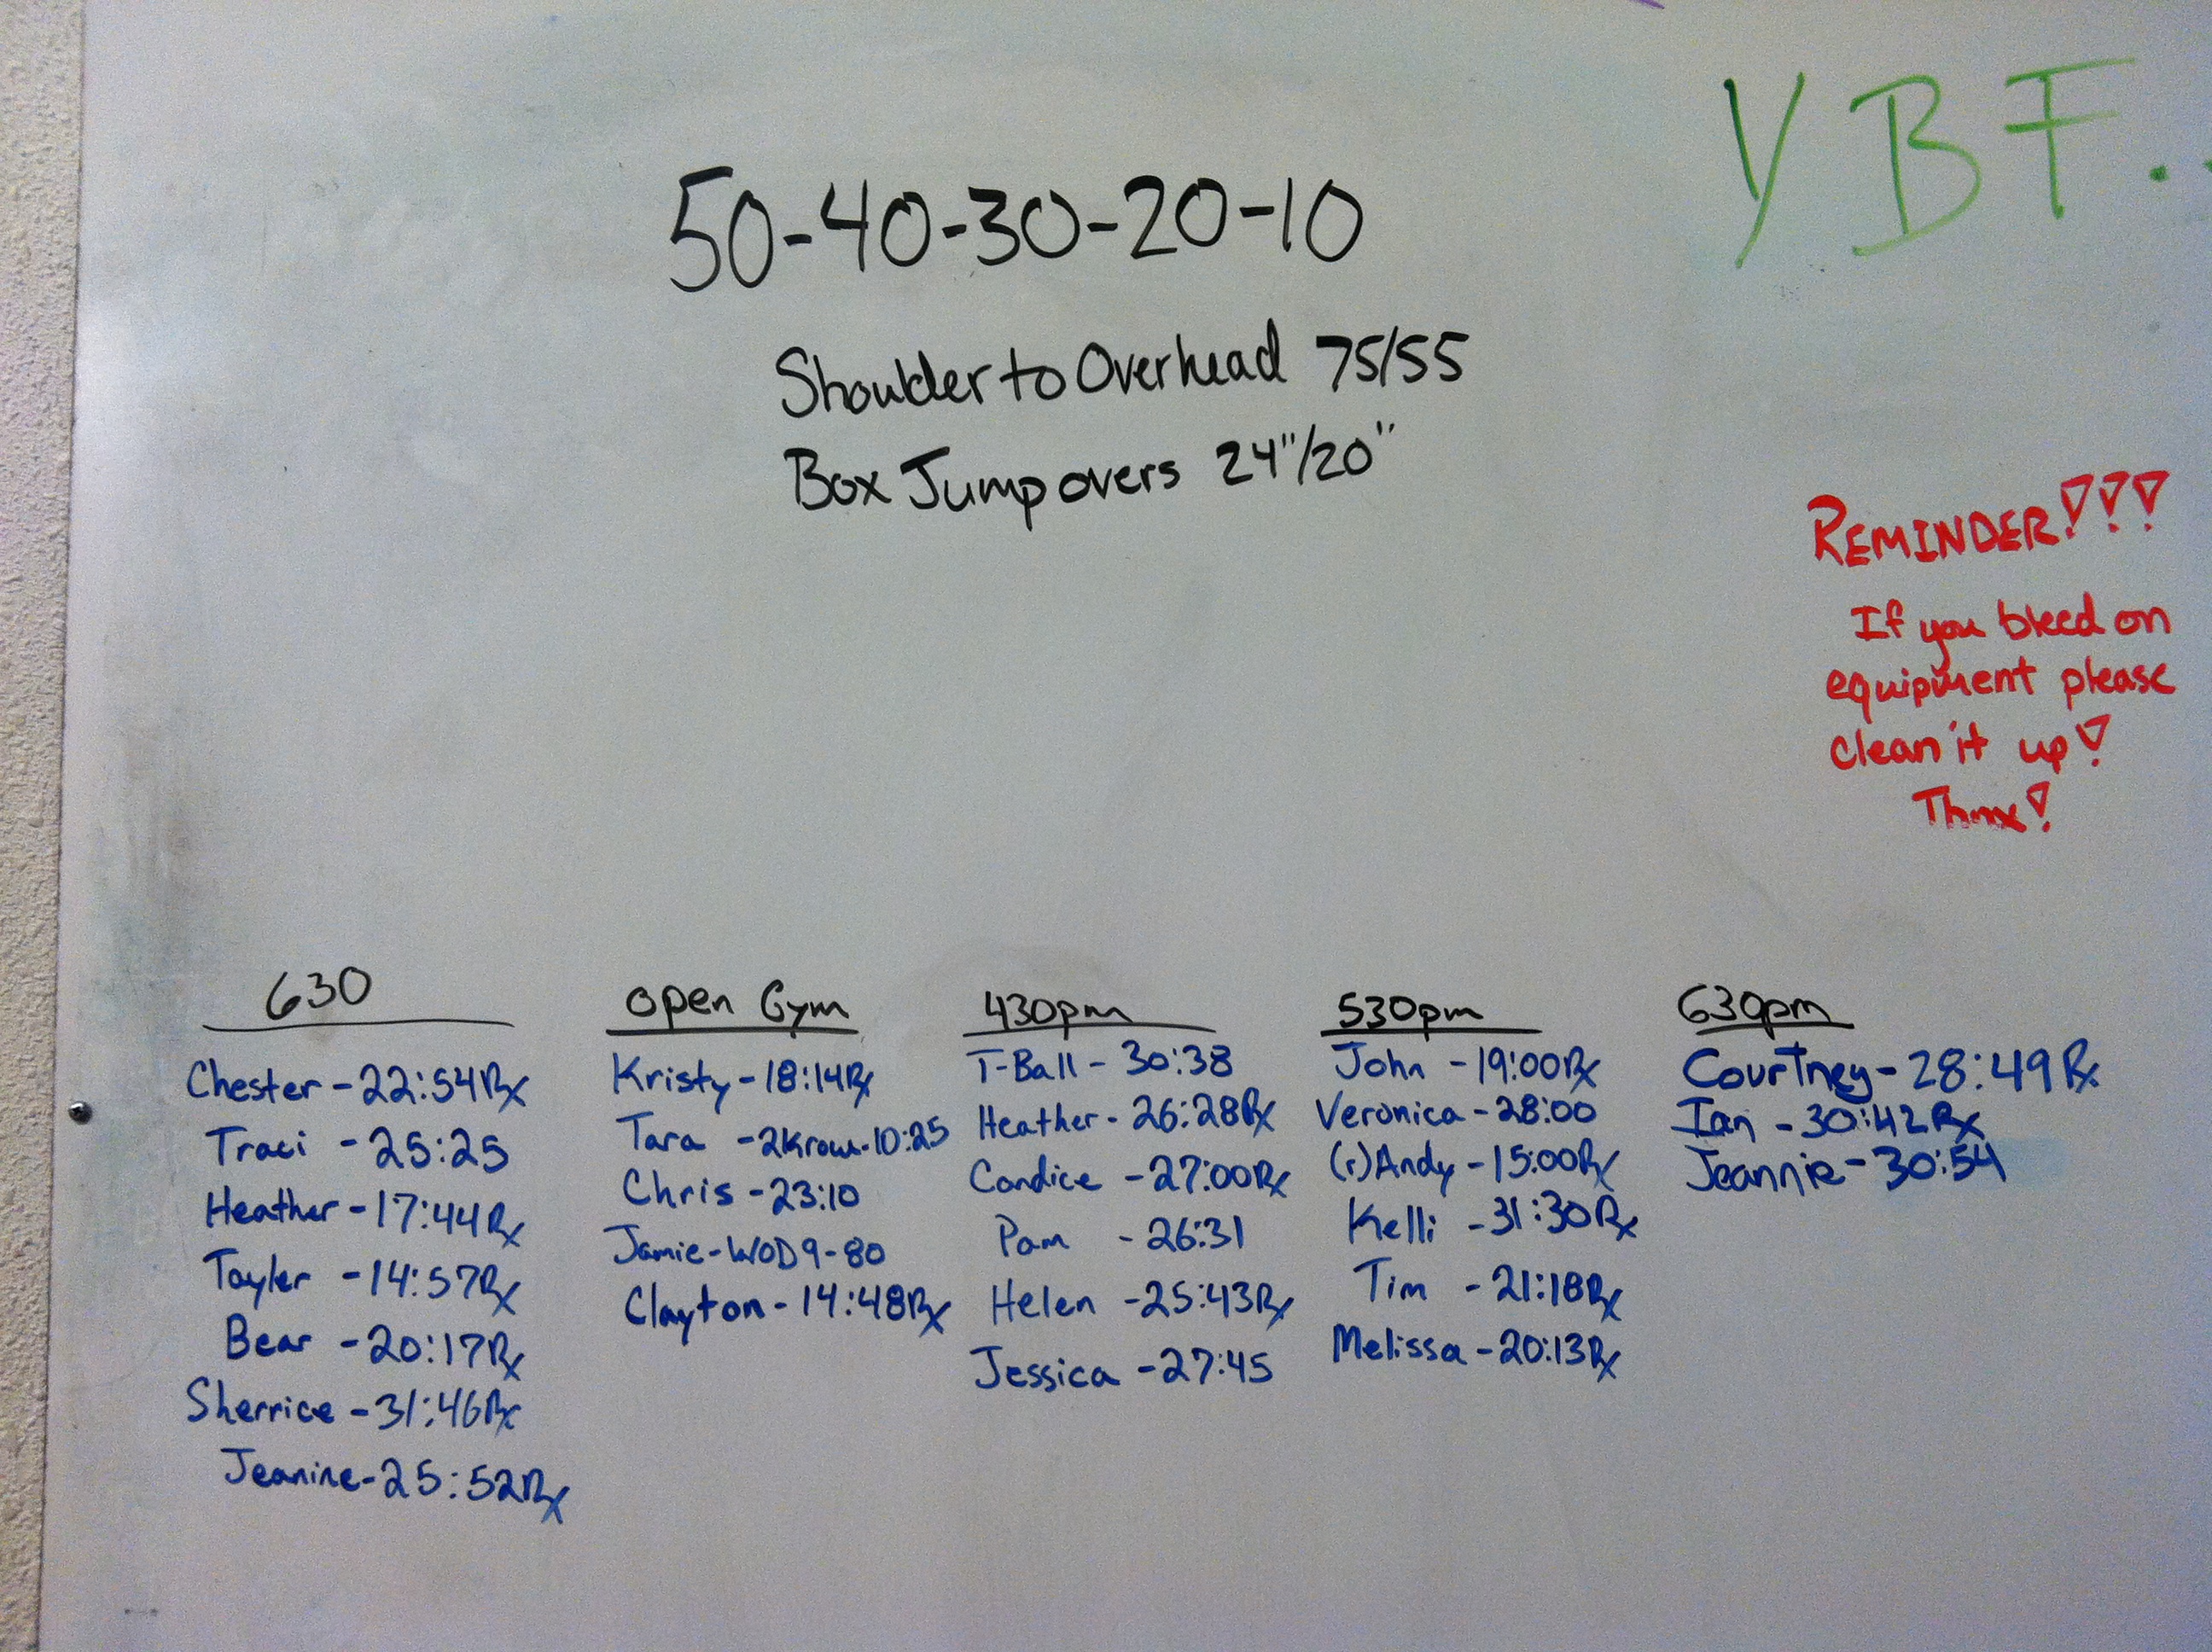 YBF.
50-40-30-20-10
Shoulder to Overhead 75/55
Box Jump overs 24"/20"
REMINDER!!!
If you bleed on
equipment please
clean it up!
Thnx!
630
Chester - 22:54Rx
Traci - 25:25
Heather - 17:44Rx
Tayler - 14:57Rx
Bear - 20:17Rx
Sherrice - 31:46Rx
Jeanine - 25:52Rx
open Gym
Kristy - 18:14Rx
Tara - 2Krow - 10:25
Chris - 23:10
Jamie - WOD 9 - 80
Clayton - 14:48Rx
430pm
T-Ball - 30:38
Heather - 26:28Rx
Candice - 27:00Rx
Pam - 26:31
Helen - 25:43Rx
Jessica - 27:45
530pm
John - 19:00Rx
Veronica - 28:00
(r)Andy - 15:00Rx
Kelli - 31:30Rx
Tim - 21:18Rx
Melissa - 20:13Rx
630pm
Courtney - 28:49Rx
Ian - 30:42Rx
Jeannie - 30:54